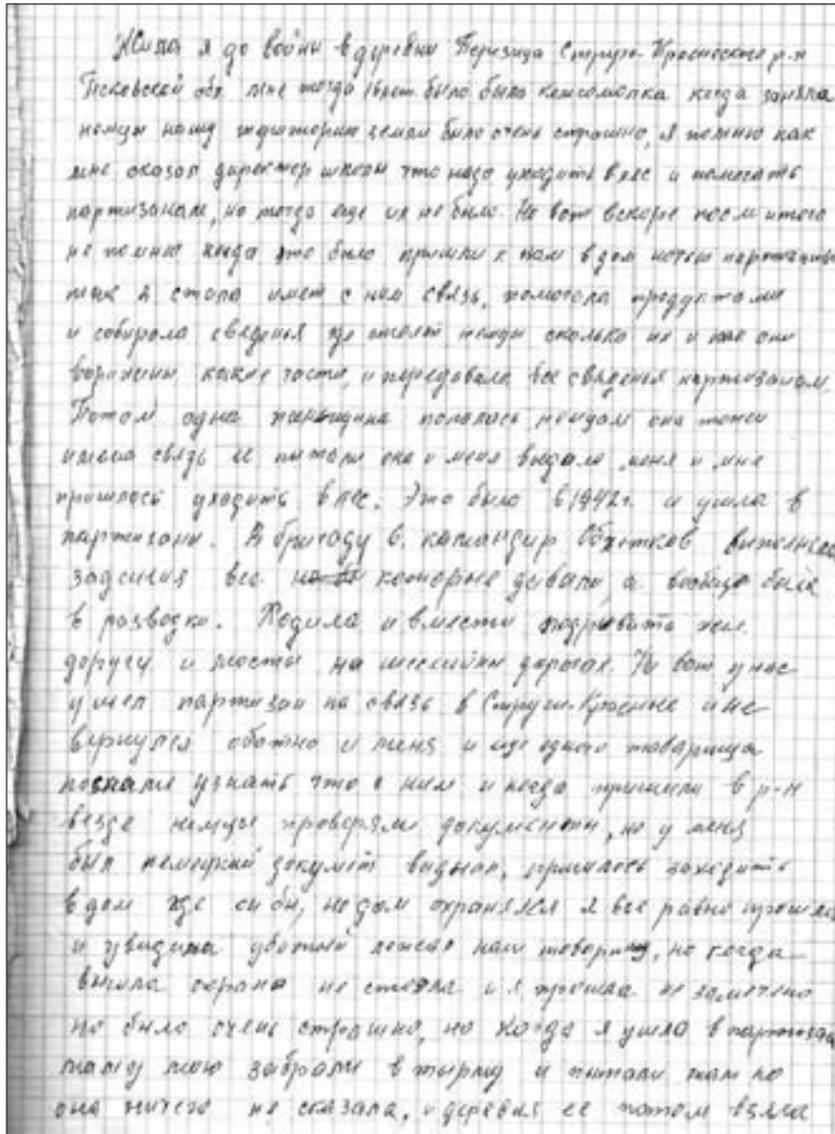 Жила я до войны в деревни Перизица Струго-Красненского р-н
Псковской обл мне тогда 16 лет было была комсомолка когда заняла
немцы нашу территорию земли было очень страшно, я помню как
мне сказал директор школы что надо уходить в лес и помогать
партизанам, но тогда еще их не было. Но вот вскоре после этого
не помню когда это было пришли к нам в дом ночью партизаны
так я стала имет с ним связь, помогала продуктами
и собирала сведенья где стоят немцы сколько их и как они
воружены какие части, и передавала все сведенья партизанам.
Потом одна женьщина попалась немцам она тоже
имела связь ее пытали она и меня выдала меня и мне
пришлось уходить в лес. Это было в 1942 г. и ушла в
партизаны. В бригаду 6. командир Объетков выполняла
задания все которые давали, а вообще была
в разводки. Ходила и вместе подрывать жел.
дорогу и мосты на шоссейны дорогах. Но вот у нас
ушел партизан на связь в Струги-Красные и не
вернулся обатно и меня и еще одного товарища
послали узнать что с ним и когда пришли в р-н
везде немцы проверяли документы, но у меня
был немецкий докумет выдан, пришлось заходить
в дом где он бы, но дом охранялся я все равно прошла
и увидила убитый лежал наш товарищ, но когда
вышла охрана не стояла и я прошла не замечено
но было очень страшно, но когда я ушла в партизаны
маму мою забрали в тюрму и пытали там но
она ничего не сказала, и деревня ее потом взяла